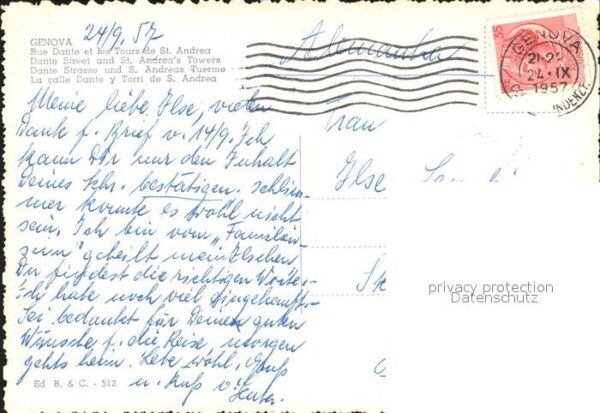 GENOVA 24/9.57
Rue Dante et les Tours de St. Andrea
Dante Street and St. Andrea's Towers
Dante Strasse und S. Andreas Tuerme
La calle Dante y Torri de S. Andrea
GENOVA
21-22
24·IX
1957
Meine liebe Ilse, vielen
Dank f. Brief v. 14/9. Ich
kann Dir nur den Inhalt
Deines Schr. bestätigen. Schlim-
mer konnte es wohl nicht
sein. Ich bin vom
geheilt
Du findest die richtigen Worte.
Ich habe noch viel
Sei bedankt für Deine guten
Wünsche f. die Reise, morgen
gehts heim. Lebe wohl, Gruß
u. Kuß v.
Frau
Ilse
privacy protection
Datenschutz
Ed B. & C. - 512